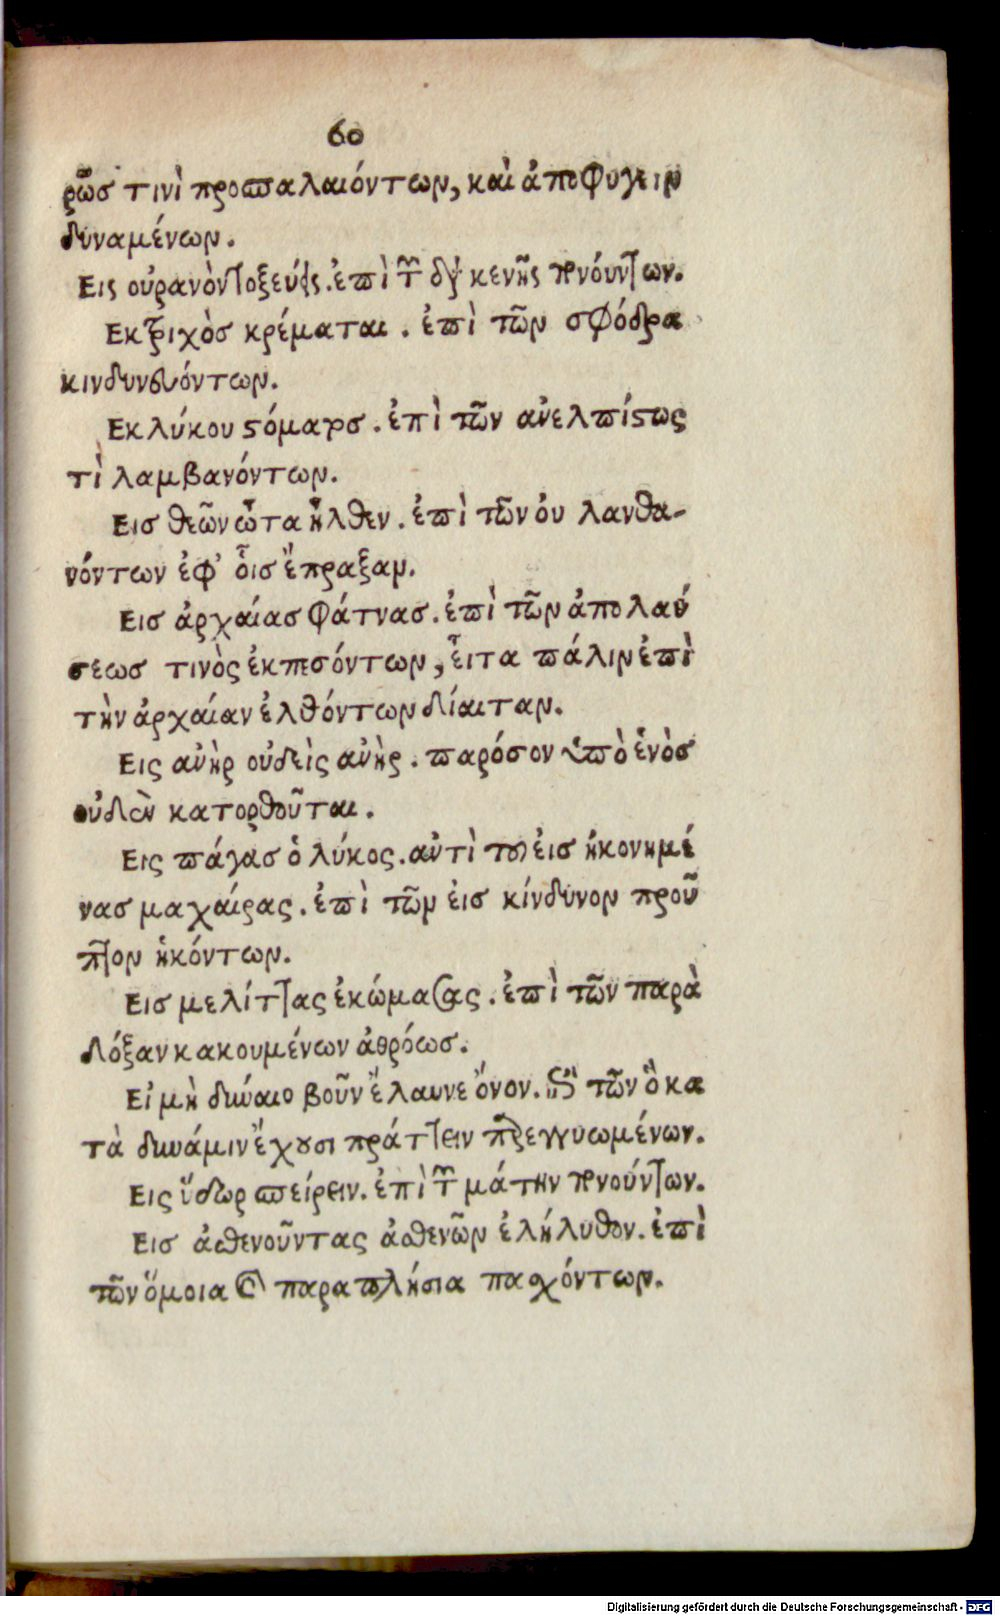 60
ρῶσ τινὶ προσπαλαιόντων, καὶ ἀποφυγεῖν
δυναμένων.
Εις οὐρανὸν τοξεύεις. ἐπὶ τῶν διὰ κενῆς πονούντων.
Εκ τριχὸσ κρέμαται. ἐπὶ τῶν σφόδρα
κινδυνευόντων.
Εκ λύκου στόματοσ. ἐπὶ τῶν ἀνελπίστως
τὶ λαμβανόντων.
Εισ θεῶν ὦτα ἦλθεν. ἐπὶ τῶν ὀυ λανθα-
νόντων ἐφ' οἷσ ἔπραξαν.
Εισ ἀρχαίας φάτνασ. ἐπὶ τῶν ἀπολαύ
σεωσ τινὸς ἐκπεσόντων, εἶτα πάλιν ἐπὶ
τὴν ἀρχαίαν ἐλθόντων δίαιταν.
Εις ἀνὴρ οὐδεὶς ἀνὴρ. παρόσον ὑπὸ ἑνὸσ
οὐδὲν κατορθοῦται.
Εις πάγασ ὁ λύκος. ἀντὶ τοῦ ἐισ ἠκονημέ
νασ μαχαίρας. ἐπὶ τῶν ἐισ κίνδυνον προῦ
πτον ἡκόντων.
Εισ μελίττας ἐκώμασας. ἐπὶ τῶν παρὰ
δόξαν κακουμένων ἀθρόωσ.
Εἰ μὴ δύναιο βοῦν ἔλαυνε ὄνον. ἐπὶ τῶν ὃ κα
τὰ δύναμιν ἔχουσι πράττειν παρεγγυωμένων.
Εις ὕδωρ σπείρειν. ἐπὶ τῶν μάτην πονούντων.
Εισ ἀσθενοῦντας ἀσθενῶν ἐλήλυθον. ἐπὶ
τῶν ὅμοια καὶ παραπλήσια πασχόντων.
Digitalisierung gefördert durch die Deutsche Forschungsgemeinschaft - DFG